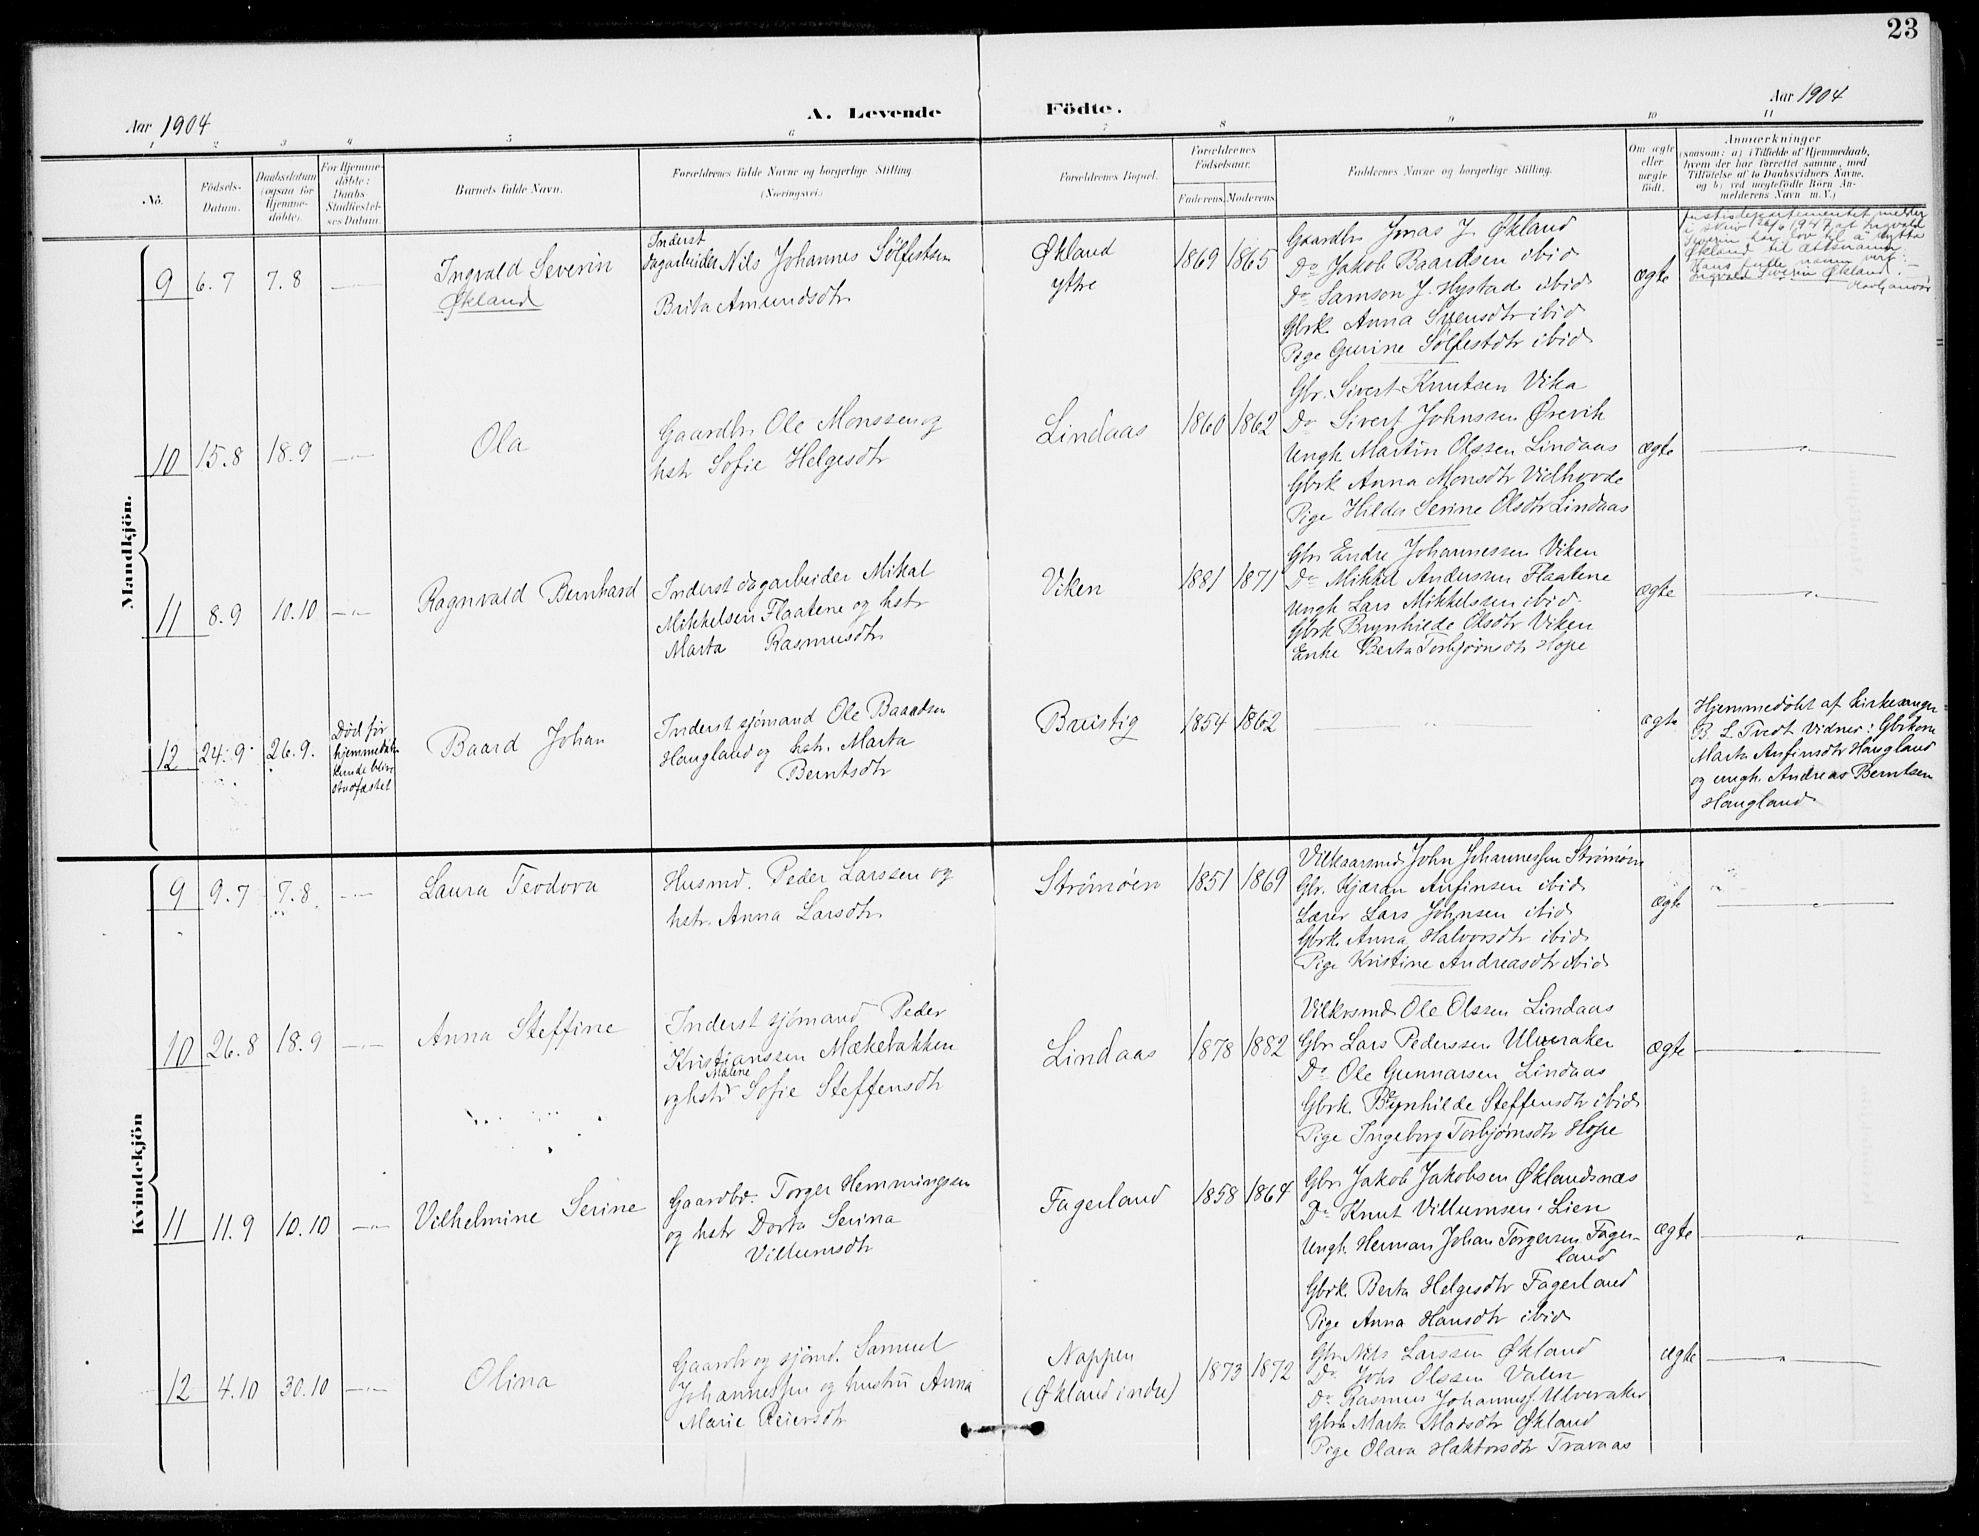 23
Aar 1904
A. Levende
Födte.
Aar 1904
1 2 3 4 5 6 7 8 9 10 11
No.
Födsels-
Datum.
Daabsdatum
(ogsaa for
Hjemme-
döbte).
For Hjemme-
döbte:
Daabs
Stadfæstel-
ses Datum.
Barnets fulde Navn.
Forældrenes fulde Navne og borgerlige Stilling
(Næringsvei.)
Forældrenes Bopæl.
Forældrenes
Födselsaar.
Faderens.
Moderens.
Faddernes Navne og borgerlige Stilling.
Om ægte
eller
uægte
födt.
Anmærkninger
(saasom: a) i Tilfælde af Hjemmedaab,
hvem der har forrettet samme, med
Tilföielse af to Daabsvidners Navne,
og b) ved uægtefödte Börn An-
melderens Navn m. V.)
Mandkjön.
9
6.7
7.8
Ingvald Severin
Økland
Inderst
dagarbeider Nils Johannes Sølfestsen
Brita Amundsdtr
Økland
ytre
1869
1865
Gaardbr Jonas J. Økland
Do Jakob Baardsen ibid
Do Samson J. Hystad ibid
Gbrk. Anna Svensdtr ibid
Pige Gurine Sølfestdtr ibid
ægte
Justisdepartementet melder
i skriv 1947 at Ingvald
Severin har lov til å nytta
Økland til ættsnamn
Hans fulle namn vert:
Ingvald Severin Økland.
10
15.8
18.9
Ola
Gaardbr Ole Monssen og
hstr Sofie Helgesdtr
Lindaas
1860
1862
Gbr. Sivert Knutsen Vika
Do Sivert Johnssen Ørevik
Ungk. Martin Olssen Lindaas
Gbrk Anna Monsdtr Vidhovde
Pige Hilda Serine Olsdtr Lindaas
ægte
11
8.9
10.10
Ragnvald Bernhard
Inderst dagarbeider Mikal
Mikkelsen Flaatene og hstr
Marta Rasmusdtr
Viken
1881
1871
Gbr Endre Johannessen Viken
Do Mikkel Anderssen Flaatene
Ungk Lars Mikkelsen ibid.
Gbrk Brynhilde Olsdtr Viken
Enke Berta Torbjørnsdtr Hope
ægte
12
24.9
26.9.
Død før
hjemmedaab
kunde blive
stadfæstet
Baard Johan
Inderst sjömand Ole Baardsen
Haugland og hstr. Marta
Berntsdtr
Brustig
1854
1862
ægte
Hjemmedöbt af kirkesanger
B. L. Tvedt Vidner: Gbrkone
Marta Anfinsdtr Haugland
og ungk. Andreas Berntsen
Haugland
Kvindekjön
9
9.7
7.8
Laura Teodora
Husmd. Peder Larssen og
hstr. Anna Larsdtr
Strømøen
1851
1869
Vilkaarsmd John Johannessen Strømøen
Gbr. Kjæran Anfinsen ibid
Lærer Lars Johnsen ibid
Gbrk. Anna Halvorsdtr ibid
Pige Kristine Andreasdtr ibid
ægte
10
26.8
18.9
Anna Steffine
Inderst sjömand Peder
Kristianssen Mækebakken
Maline
og hstr Sofie Steffensdtr
Lindaas
1878
1882
Vilkrsmd Ole Olssen Lindaas
Gbr Lars Pederssen Ulveraker
Do Ole Gunnarsen Lindaas
Gbrk. Brynhilde Steffensdtr ibid
Pige Ingeborg Torbjørnsdtr Hope
ægte
11
11.9
10.10
Vilhelmine Serine
Gaardbr. Torger Hemmingsen
og hstr Dorta Serina
Villumsdtr
Fagerland
1858
1864
Gbr. Jakob Jakobsen Øklandsnæs
Do Knut Villumsen Lien
Ungk. Herman Johan Torgersen Fager-
land
Gbrk. Berta Helgesdtr Fagerland
Pige Anna Hansdtr ibid
ægte
12
4.10
30.10
Olina
Gaardbr og sjömd. Samuel
Johannessen og hustru Anna
Marie Peiersdtr
Nappen
(Økland indre)
1873
1872
Gbr Nils Larssen Økland
Do. Johs Olssen Valen
Do Rasmus Johannesf Ulveraker
Gbrk Marta Madsdtr Økland
Pige Olava Haktorsdtr Travaas
ægte